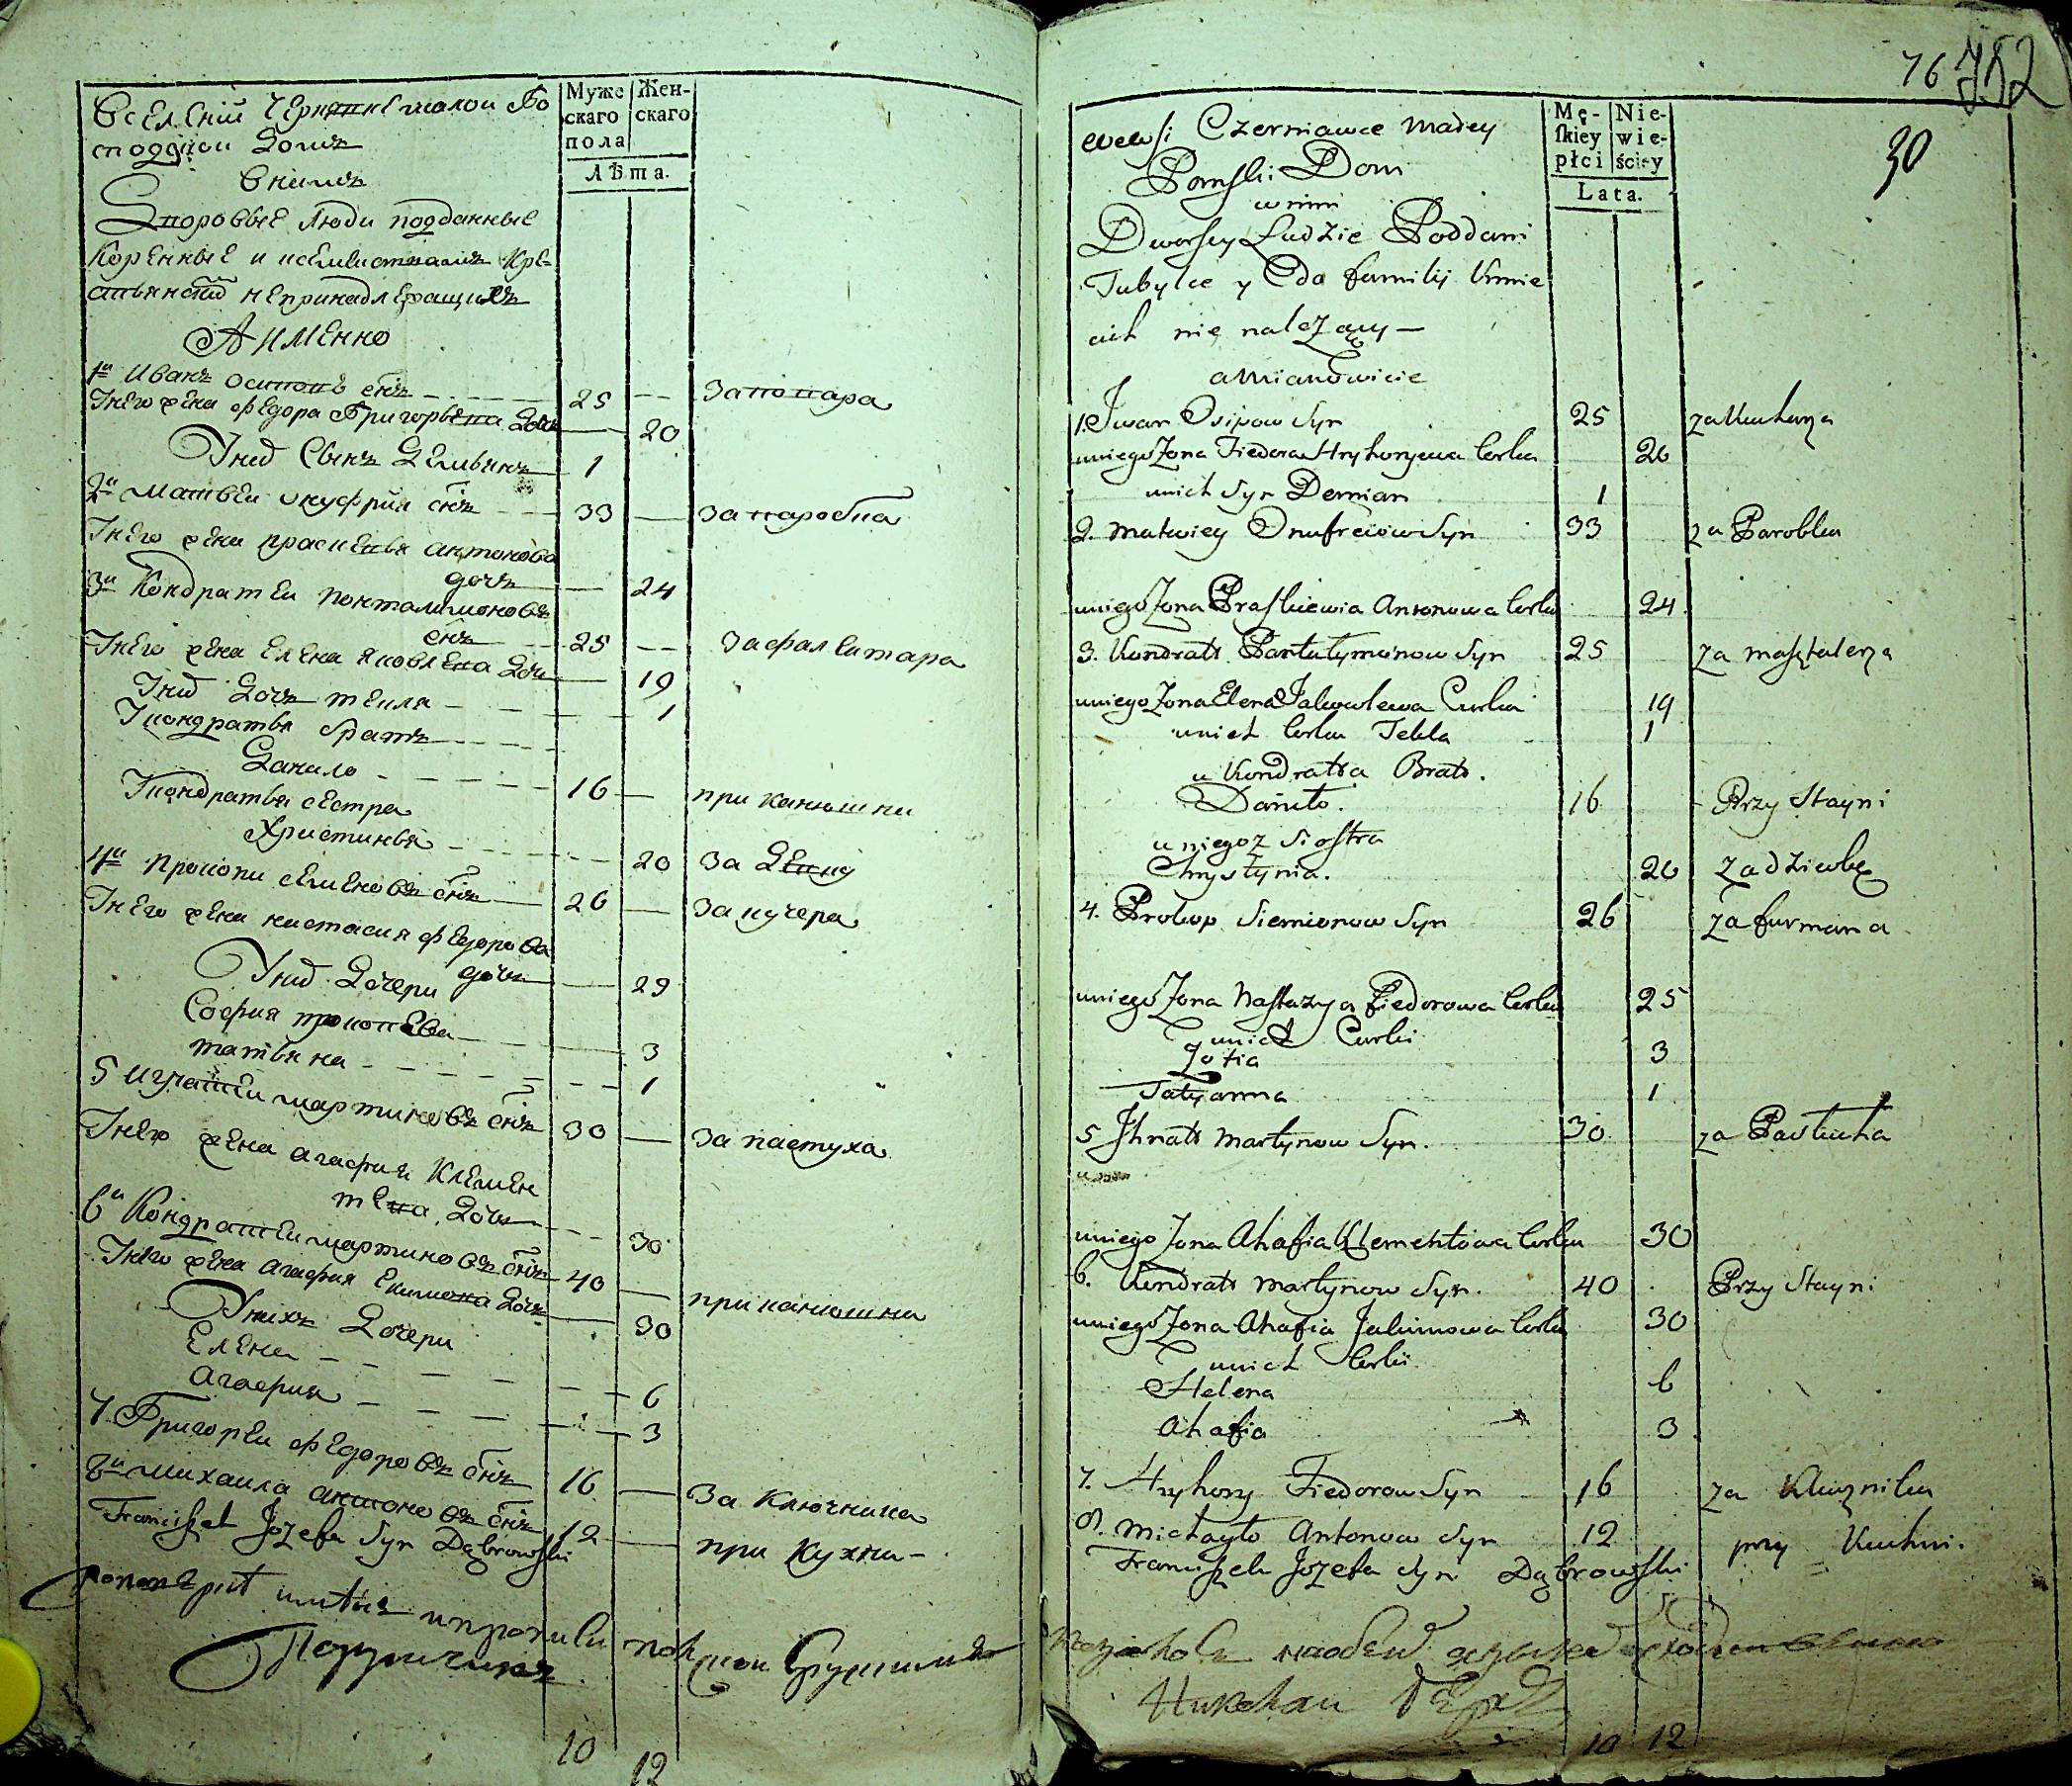 Муже
скаго
пола
Жен-
скаго
Лѣта.
Вселении Чернявке малой Го
сподскои Домъ
Внемъ
Дворовые люди подданные
Коренные и
А именно
1й Иванъ Осиповъ снъ 25 — за повара
Унего жена Федора Григорьева дочь — 20
Унихъ сынъ Демьянъ 1
2й Матвеи Онуфрия снъ 33 — за паробка
Унего жена Прасковья Антонова
дочь — 24
3й Кондратеи Понталимоновъ
снъ 25 — за фалетара
Унего жена Елена Яковлева дочь — 19
Унихъ дочь Текля — 1
Укондратья братъ
Данило — 16 — при канюшни
Укондратья сестра
Христинья — 20 за девку
4й Прокопи Семеновъ снъ — 26 — за кучера
Унего жена Настасия Федорова
дочь — 29
Унихъ дочери
София Прокопева — 3
Татьяна — 1
5 Игнатеи Мартиновъ снъ 30 — за пастуха
Унего жена Агафия Клемен
тева дочь — 30
6й Кондратеи Мартиновъ снъ 40 — при канюшни
Унего жена Агафия Екимова дочь — 30
Унихъ дочери
Елена — 6
Агафия — 3
7 Григореи Федоровъ снъ 16 — за Ключника
8й Михаила Антоновъ снъ 12 — при Кухни —
Franciszek Jozefa Syn Dąbrowski
Порутчикъ
10 12
76 752
30
Mę-
skiey
płci
Nie-
wie-
ściey
Lata.
wewsi Czerniawce Małey
Pański Dom
w nim
Dworscy Ludzie Poddani
Tubylce y do familij Kmie
cich nie należący —
amianowicie
1. Iwan Osipow Syn 25 za Kucharza
uniego Żona Fiedora Hryhoryewa Corka 20
unich Syn Demian 1
2. Matwiey Onufreiow Syn 33 za Parobka
uniego Żona Praskiewia Antonowa Corka 24
3. Kondrat Pantałymonow Syn 25 za masztalerza
uniego Żona Elena Jakowlewa Curka 19
unich Corka Tekla 1
u Kondrata Brat.
Daniło. 16 Przy Stayni
uniegoż Siostra
Chrystynia. 20 za dziewkę
4. Prokop Siemionow Syn 26 za furmana
uniego Żona Nastazya Fiedorowa Corka 25
unich Curki
Zofia 3
Tatyanna 1
5 Ihnat Martynow Syn. 30 za Pastucha
uniego Żona Ahafia Klementowa Corka 30
6. Kondrat Martynow Syn. 40 Przy Stayni
uniego Żona Ahafia Jakimowa Corka 30
unich Corki
Helena 6
Ahafia 3
7. Hryhory Fiedorow Syn 16 za Klucznika
8. Michayło Antonow Syn 12 przy Kuchni.
Franciszek Jozefa Syn Dąbrowski
10 12